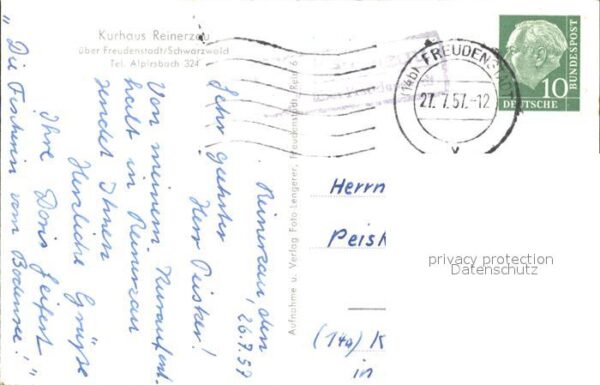 Kurhaus Reinerzau
über Freudenstadt/Schwarzwald
Tel. Alpirsbach 324
Reinerzau, den
26.7.57
Sehr geehrter
Herr Peisker!
Von meinem Kuraufent-
halt in Reinerzau
sendet Ihnen
Herzliche Grüße
Ihre Doris Seifert
"Die Fischerin vom Bodensee!"
Aufnahme u. Verlag Foto Lengerer, Freudenstadt
(14b) FREUDENSTADT
27. 7. 57.-12
v
10
DEUTSCHE
BUNDESPOST
Herrn
Peisk
(14a) K
in
privacy protection
Datenschutz